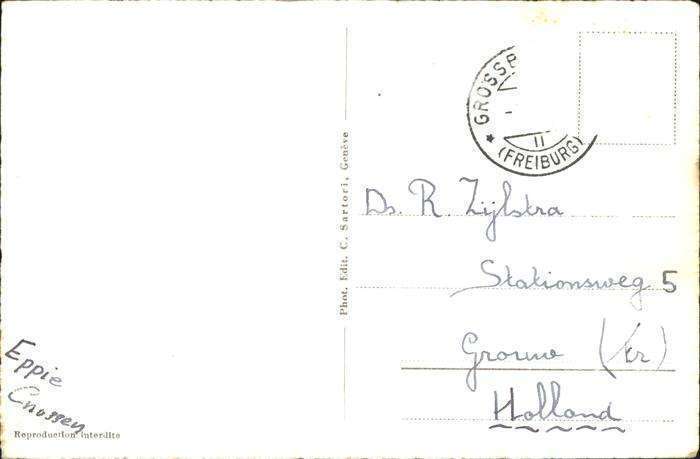 GROSSP
II
* (FREIBURG)
Phot. Edit. C. Sartori, Genève
Ds. R. Zijlstra
Stationsweg 5
Grouw (Fr)
Holland
Eppie
Cnossen
Reproduction interdite